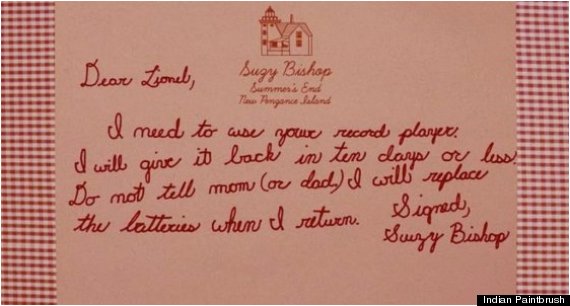 Suzy Bishop
Summer's End
New Pengance Island
Dear Lionel,
I need to use your record player.
I will give it back in ten days or less.
Do not tell mom (or dad.) I will replace
the batteries when I return. Signed,
Suzy Bishop
Indian Paintbrush